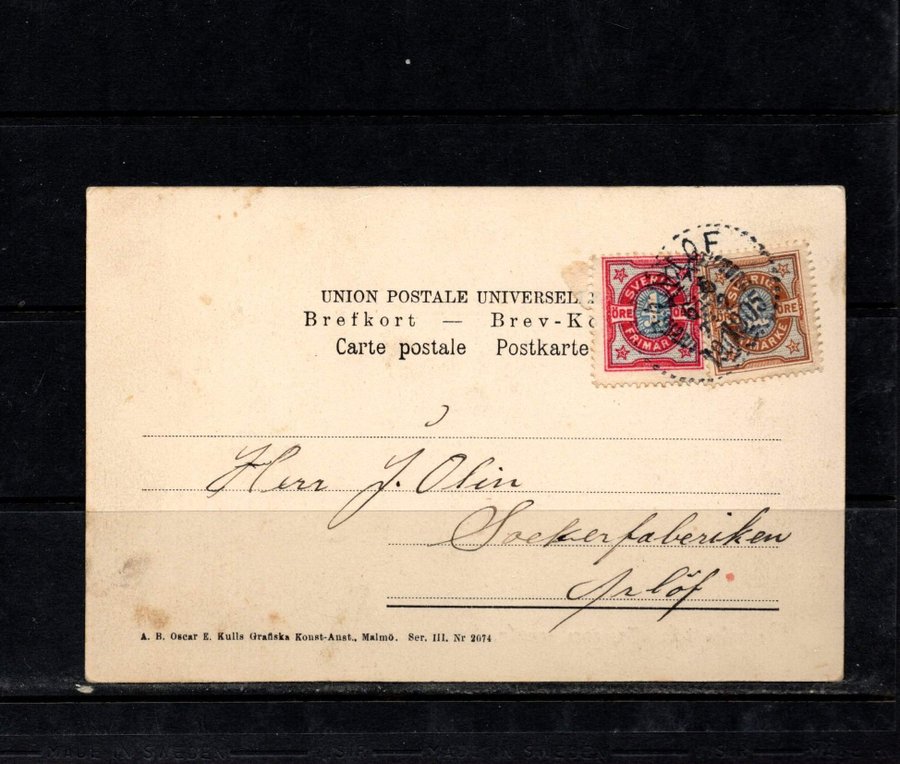 UNION POSTALE UNIVERSEL
Brefkort — Brev-Ko
Carte postale Postkarte
SVERIGE
ÖRE
FRIMÄRKE
SVERIGE
ÖRE
FRIMÄRKE
Herr J. Olin
Sockerfabriken
Arlöf
A. B. Oscar E. Kulls Grafiska Konst-Anst., Malmö. Ser. III. Nr 2074
MADE IN SWEDEN